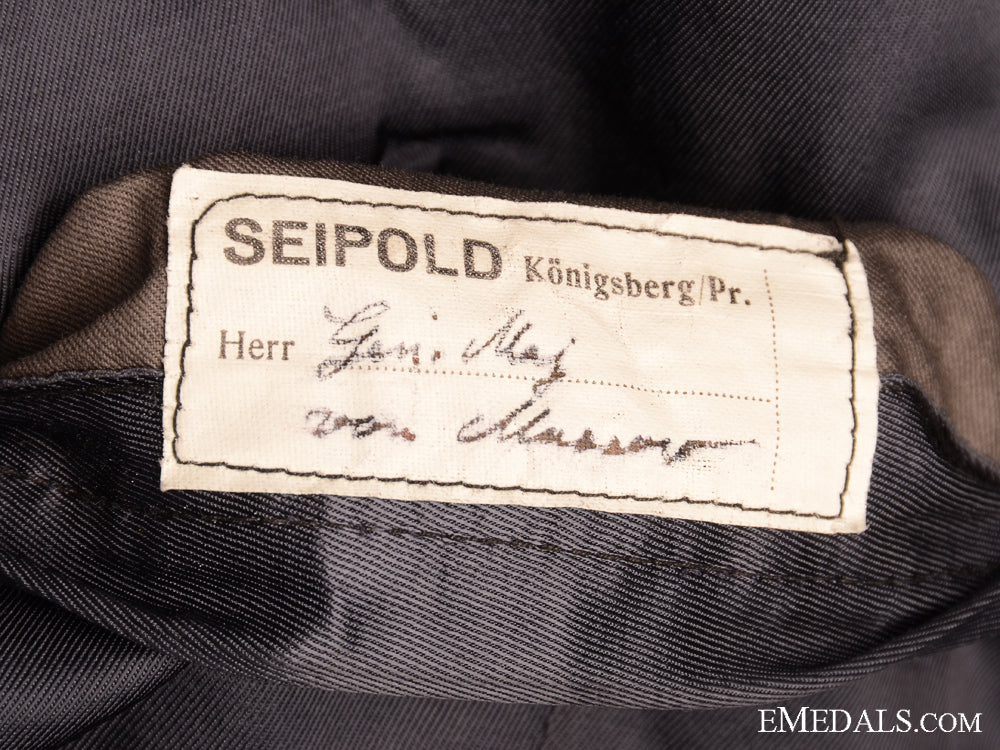 SEIPOLD Königsberg/Pr.
Herr Gen. Maj
von Massow
EMEDALS.COM